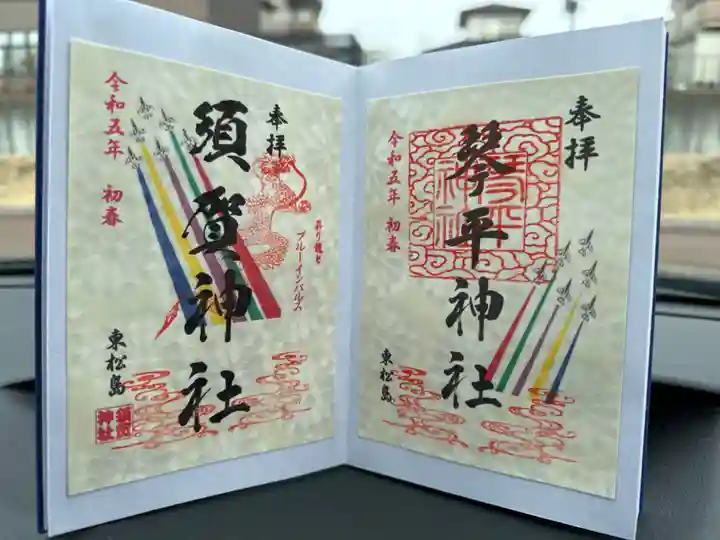 奉拝
須賀神社
令和五年 初春
昇り龍と
ブルーインパルス
東松島
須賀
神社
奉拝
琴平神社
令和五年 初春
東松島